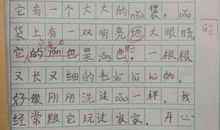 它有一个大大的nǎo袋,nǎo
袋上有一双明亮的大眼睛
它的zōng也是zōng色的,一根根
又长又细的
好像刚刚洗过zǎo一样。我
经常跟它玩过家家。开心
的